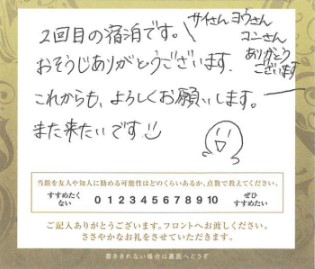 2回目の宿泊です。
サイさん ヨウさん
コンさん
ありがとう
ございます
おそうじありがとうございます。
これからも、よろしくお願いします。
また来たいです
当館を友人や知人に勧める可能性はどのくらいあるか、点数で教えてください。
すすめたく
ない
0 1 2 3 4 5 6 7 8 9 10
ぜひ
すすめたい
ご記入ありがとうございます。フロントへお渡しください。
ささやかなお礼をさせていただきます。
書ききれない場合は裏面へどうぞ